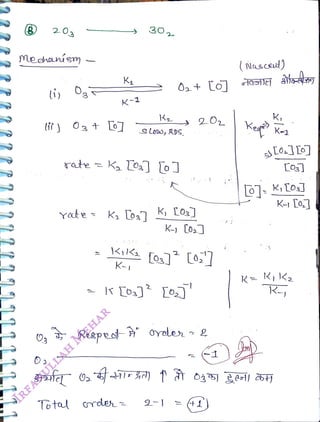 ⑧ 2O₃ ⟶ 3O₂
Mechanism –
(Nascad)
नवजात ऑक्सीजन
(i) O₃ ⇌ O₂ + [O]
K₁
K₋₁
(ii) O₃ + [O] ⟶ 2O₂
K₂
slow, RDS.
K = K₁ / K₋₁
⇒ [O₂][O] / [O₃]
rate = K₂ [O₃] [O]
[O] = K₁[O₃] / K₋₁[O₂]
rate = K₂ [O₃] K₁ [O₃] / K₋₁ [O₂]
= K₁K₂ / K₋₁ [O₃]² [O₂⁻¹]
= K [O₃]² [O₂]⁻¹
K = K₁K₂ / K₋₁
O₃ के Respect में order = 2
O₂ = -1
अर्थात् O₂ की सान्द्रता ↑ तो O₃ का टूटना कम
Total order = 2-1 = +1
IRFATULLAH MEHAR